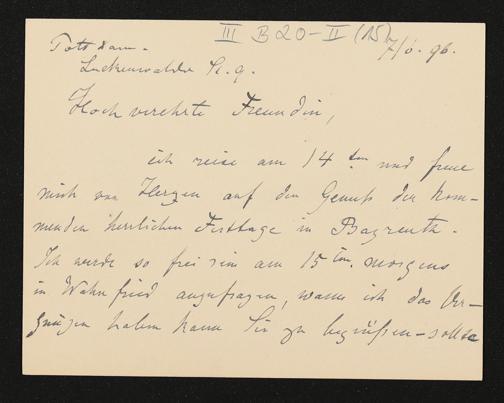 III B 20-II (15)
Potsdam. 7/6. 96.
Luckenwalder St. 9.
Hochverehrte Freundin,
ich reise am 14ten und freue
mich von Herzen auf den Genuß der kom-
menden herrlichen Festtage in Bayreuth.
Ich werde so frei sein am 15ten. morgens
in Wahnfried anzufragen, wann ich das Ver-
gnügen haben kann Sie zu begrüßen - sollte